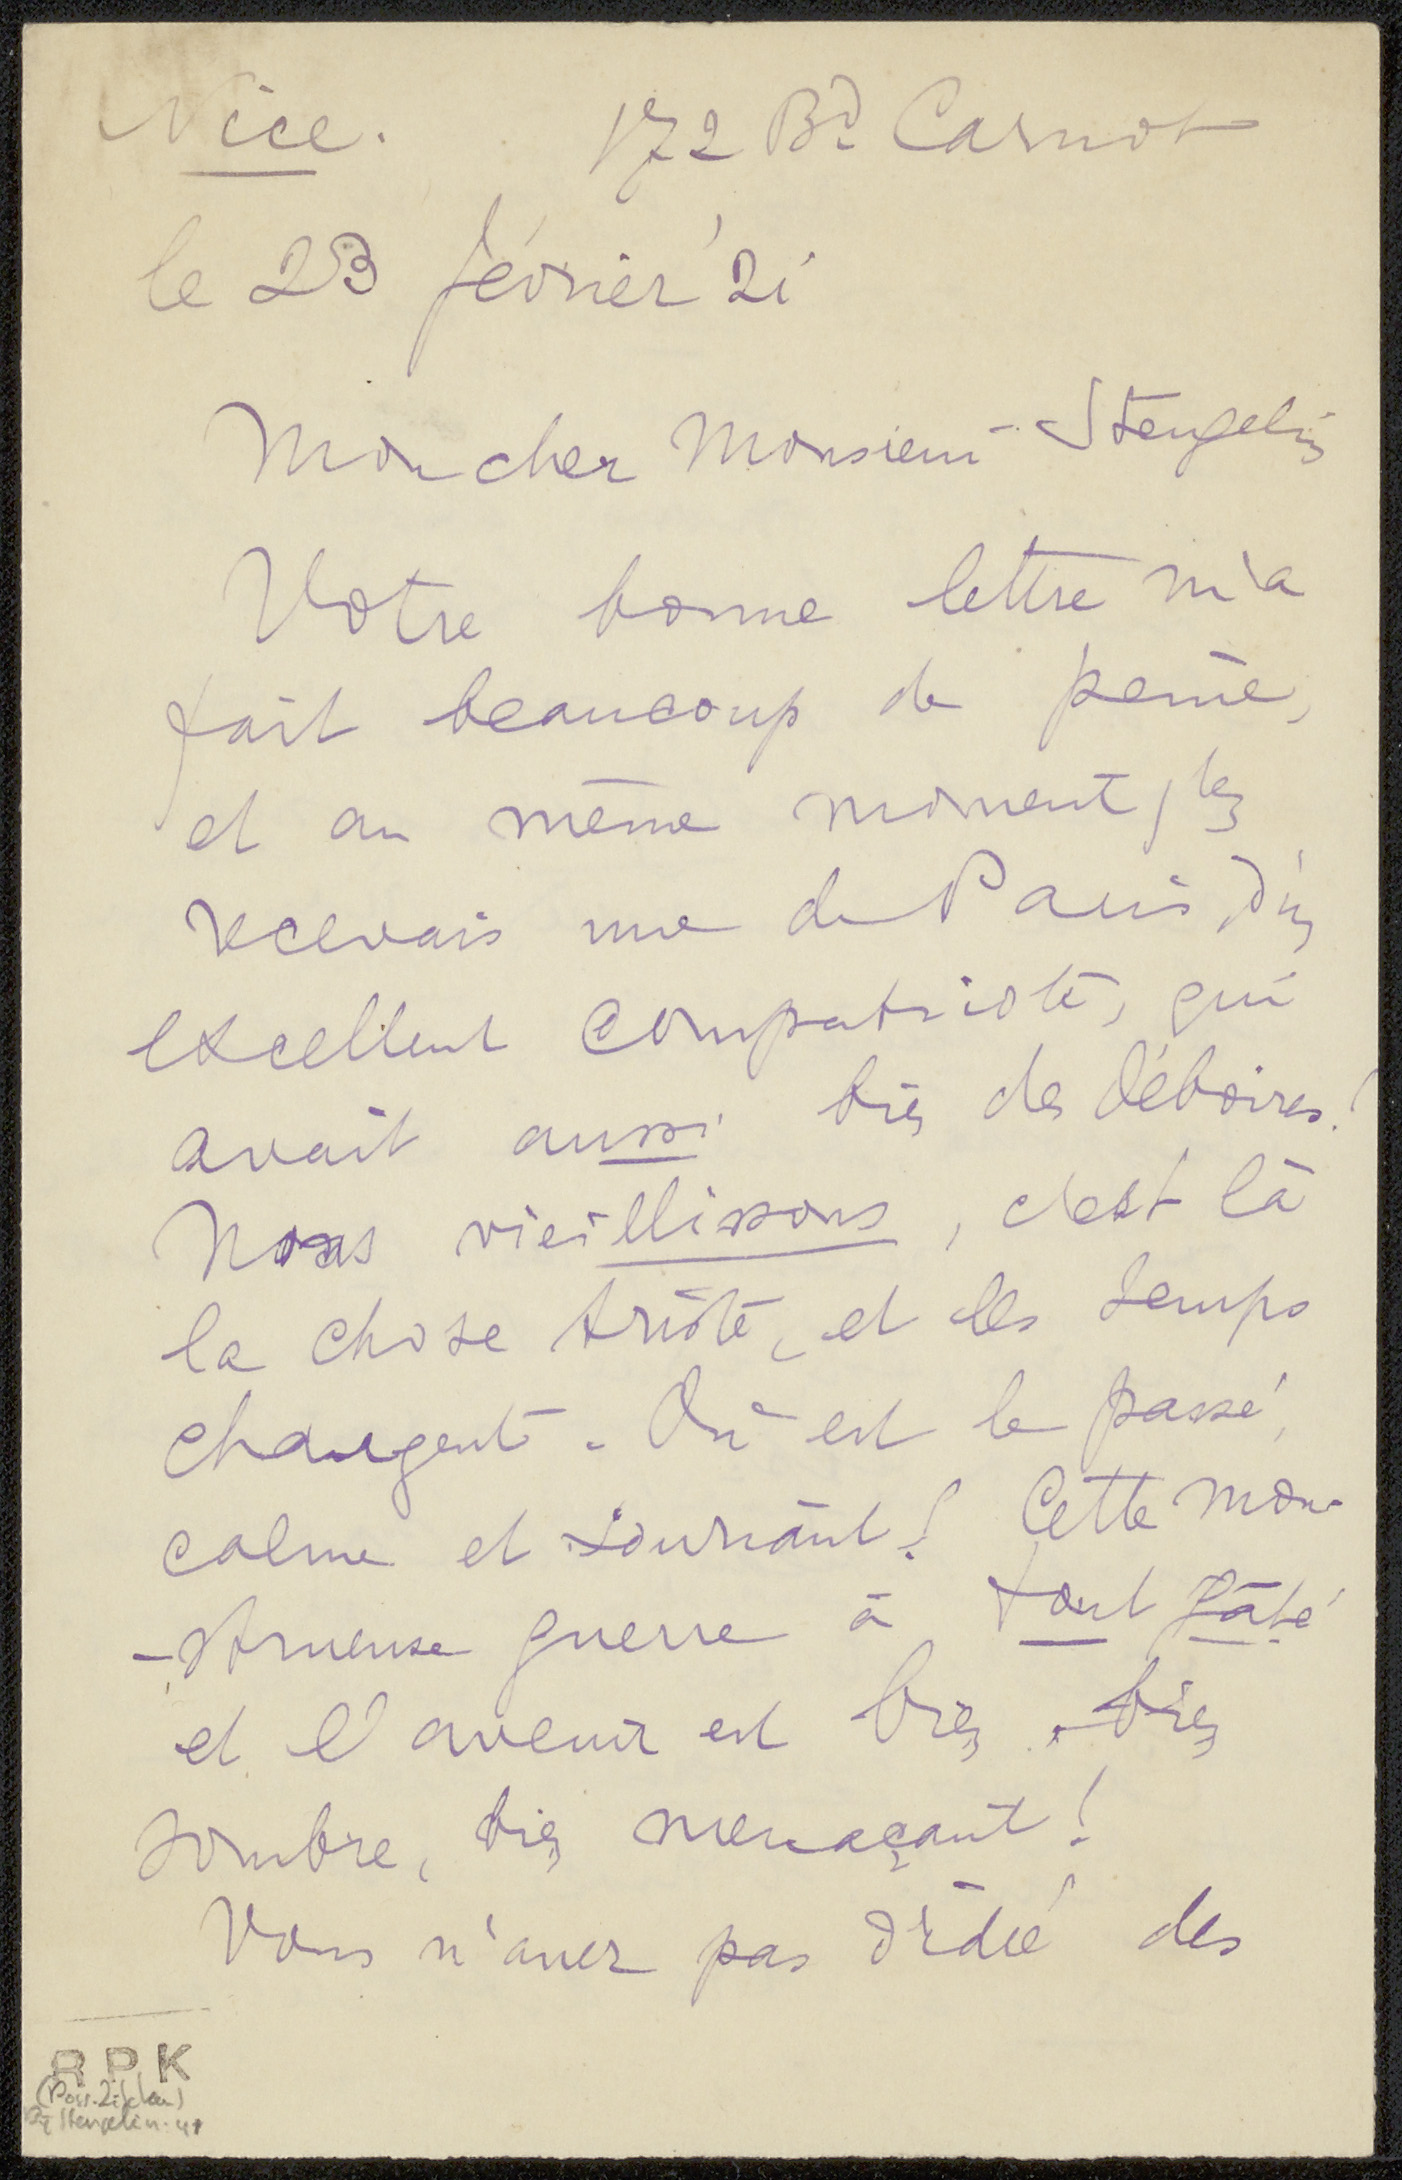 Nice. 172 Bd Carnot
le 23 février '21
Mon cher Monsieur Stengelin
Votre bonne lettre m'a
fait beaucoup de peine,
et au même moment, je
recevais une de Paris, d'un
excellent compatriote, qui
avait aussi bien des déboires!
Nous vieillissons, c'est là
la chose triste, et les temps
changent. Où est le passé,
calme et souriant? Cette mon-
-strueuse guerre à tout gâté
et l'avenir est bien, bien
sombre, bien menaçant!
Vous n'avez pas d'idée des
RPK
Stengelin